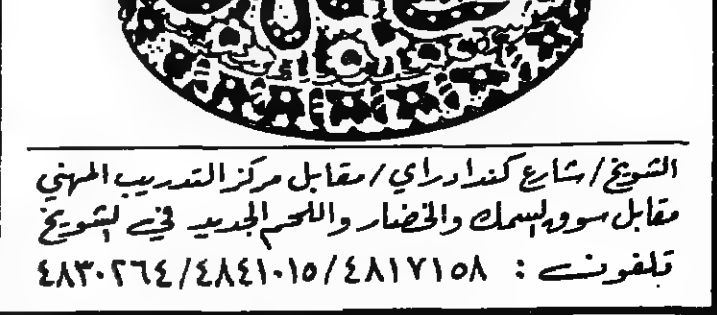 الشويخ / شارع كندا دراي / مقابل مركز التدريب المهني
مقابل سوق السمك والخضار واللحم الجديد في الشويخ
تلفون : ٤٨١٧١٥٨ / ٤٨٤١٠١٥ / ٤٨٣٠٢٦٤